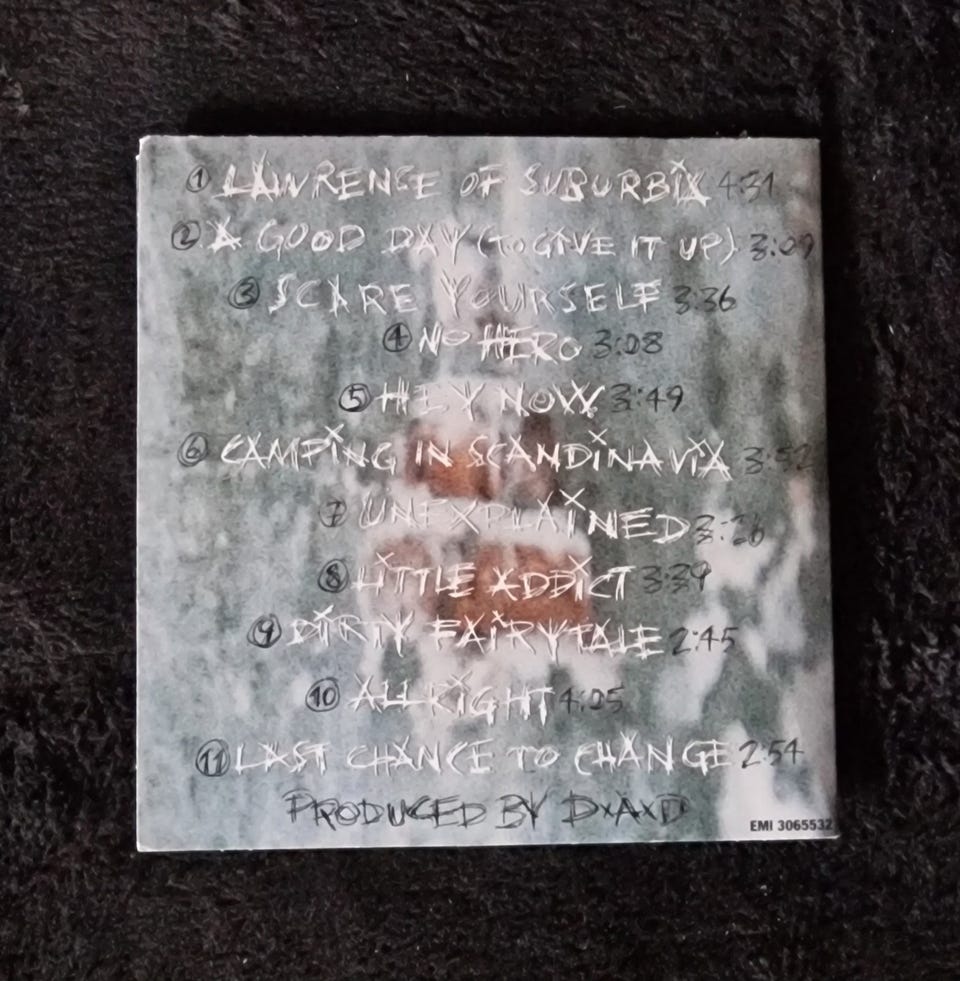 1 LAWRENCE OF SUBURBIA 4:31
2 A GOOD DAY (TO GIVE IT UP) 3:09
3 SCARE YOURSELF 3:36
4 NO HERO 3:08
5 HEY NOW 3:49
6 CAMPING IN SCANDINAVIA 3:52
7 UNEXPLAINED 3:26
8 LITTLE ADDICT 3:39
9 DIRTY FAIRYTALE 2:45
10 ALLRIGHT 4:05
11 LAST CHANCE TO CHANGE 2:54
PRODUCED BY DXAXD
EMI 3065532